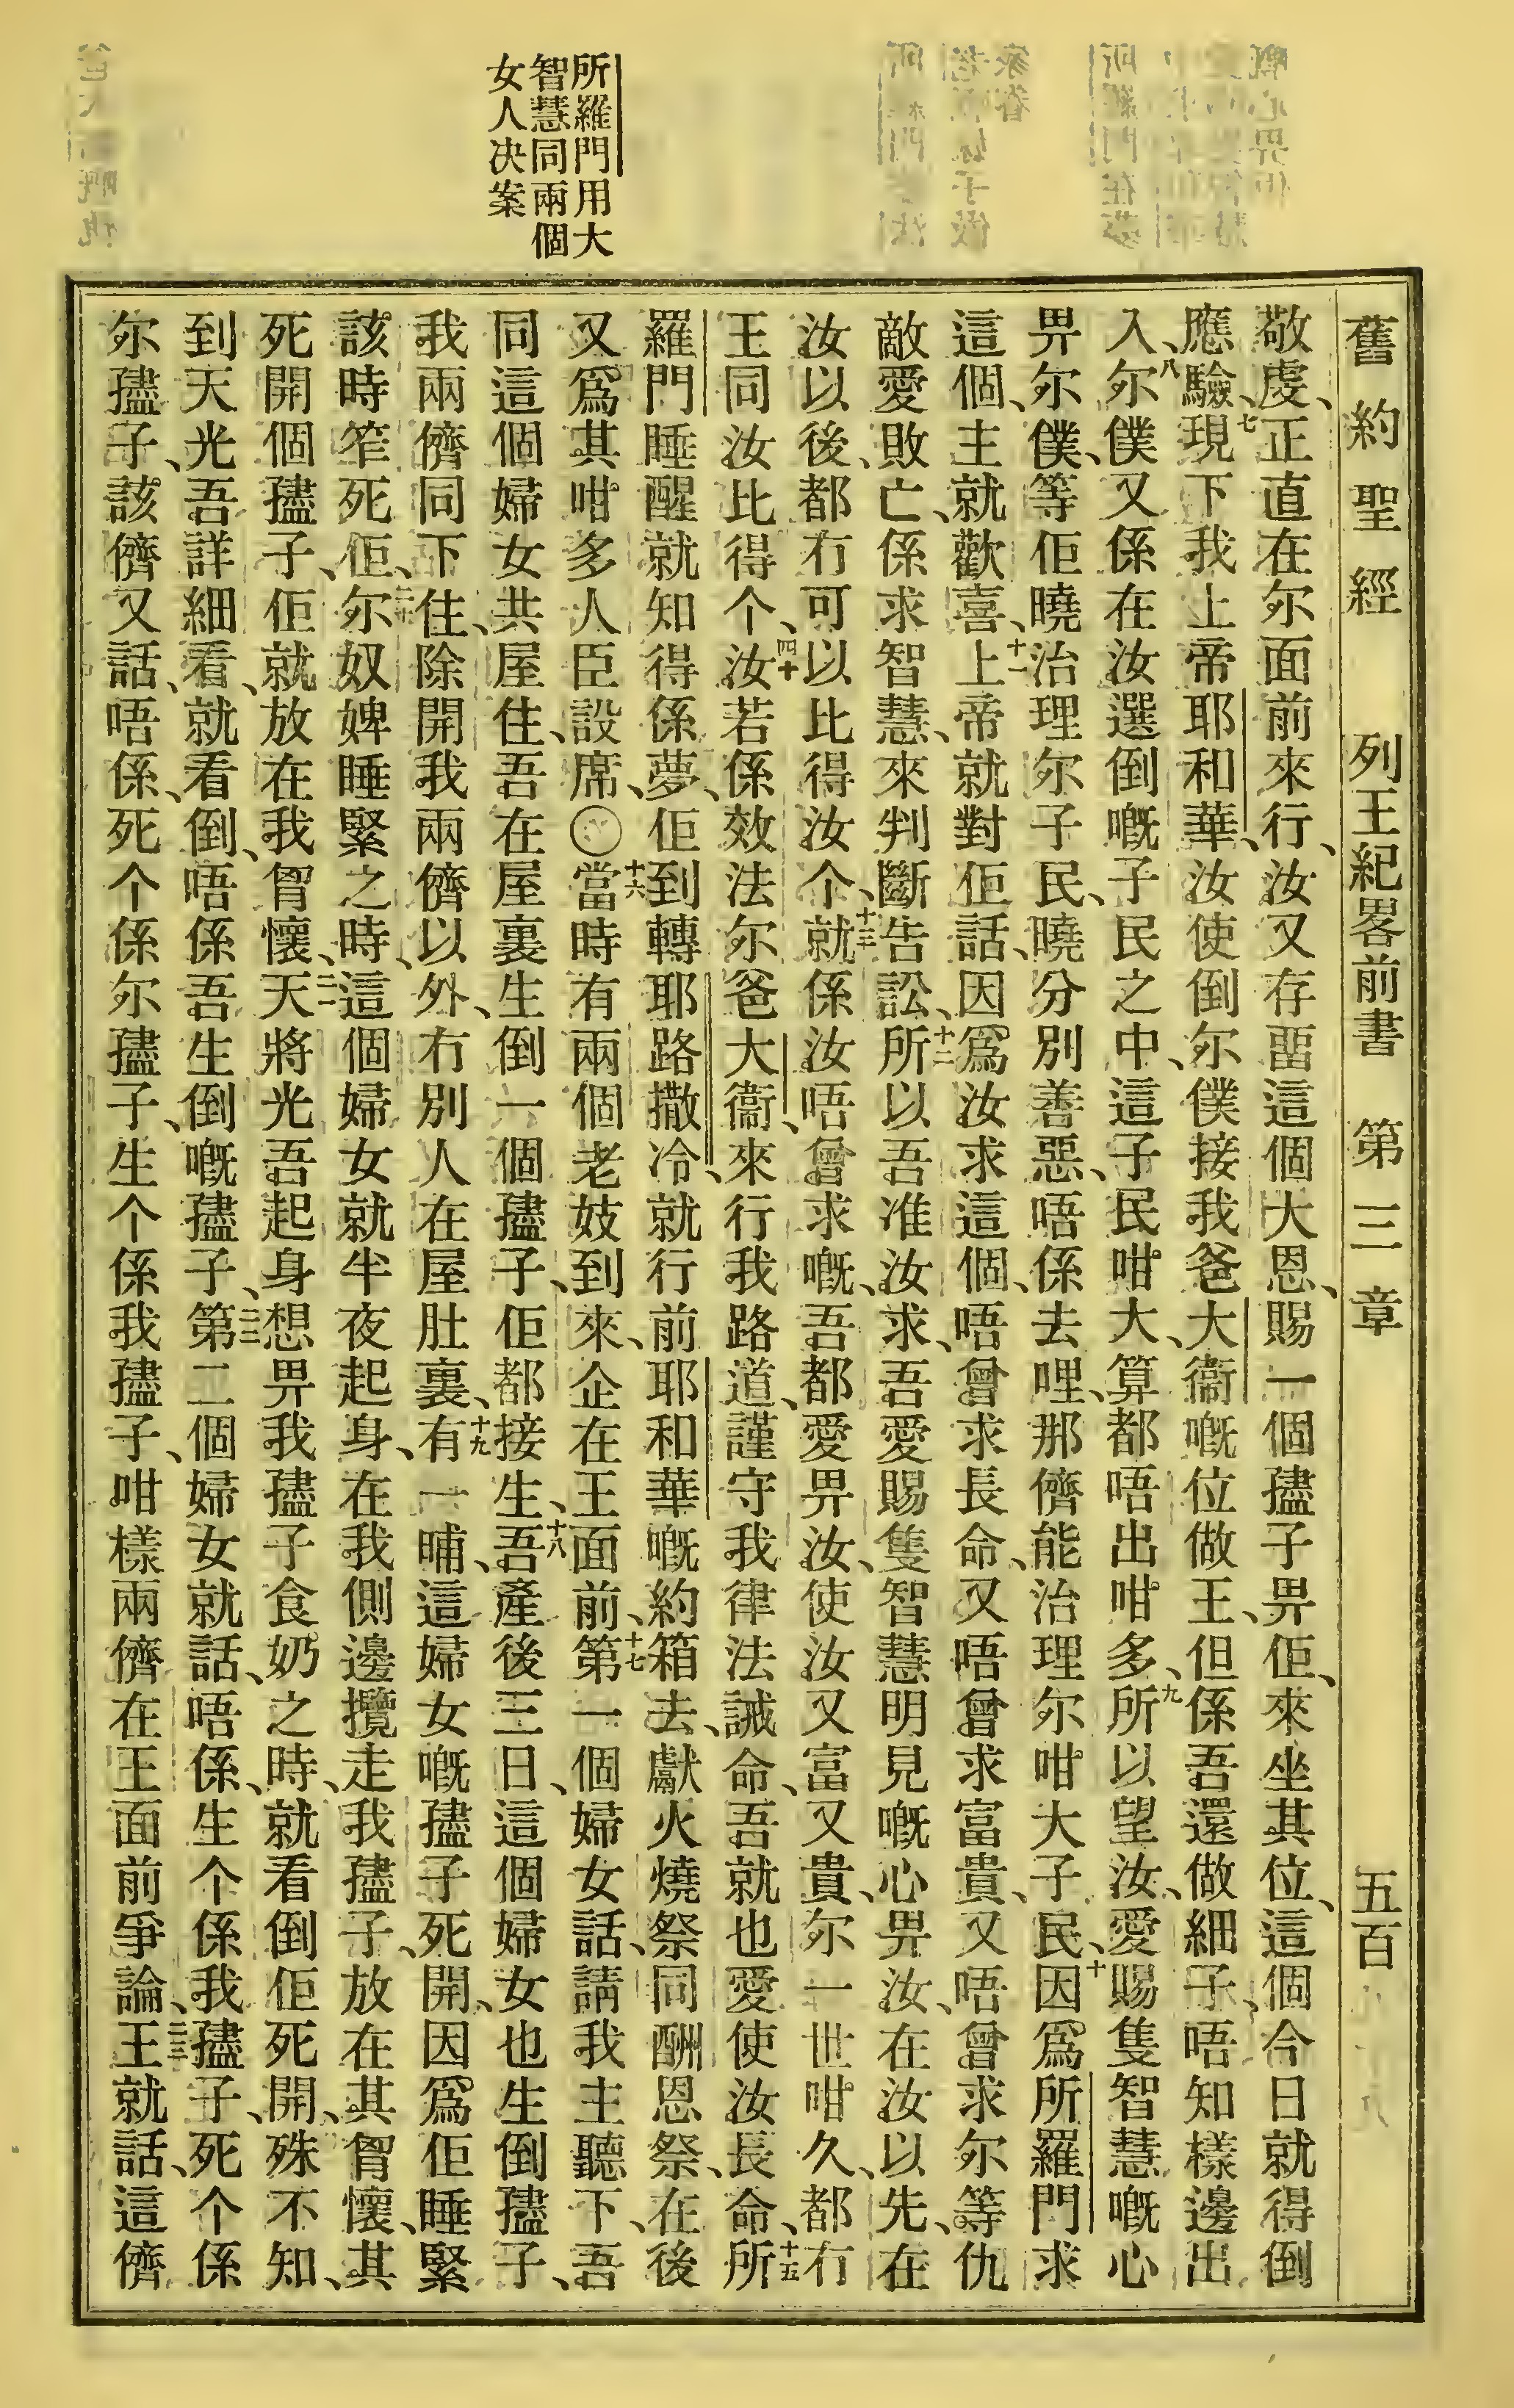 舊約聖經 列王紀畧前書 第三章 五百
敬虔、正直在尔面前來行、汝又存畱這個大恩、賜一個𡥧子畀佢、來坐其位、這個今日就得倒
應驗、七現下我上帝耶和華、汝使倒尔僕接我爸大衞嘅位做王、但係吾還做細子、唔知樣邊出
入、八尔僕又係在汝選倒嘅子民之中、這子民咁大、算都唔出咁多、九所以望汝、愛賜隻智慧嘅心
畀尔僕、等佢曉治理尔子民、曉分別善惡、唔係去哩、那儕能治理尔咁大子民、十因爲所羅門求
這個、主就歡喜、十一上帝就對佢話、因爲汝求這個、唔曾求長命、又唔曾求富貴、又唔曾求尔等仇
敵愛敗亡、係求智慧、來判斷告訟、十二所以吾准汝求、吾愛賜隻智慧明見嘅心畀汝、在汝以先、在
汝以後、都冇可以比得汝个、十三就係汝唔曾求嘅、吾都愛畀汝、使汝又富又貴、尔一世咁久、都冇
王同汝比得个、十四汝若係效法尔爸大衞、來行我路道、謹守我律法誡命、吾就也愛使汝長命、十五所
羅門睡醒就知得係夢、佢到轉耶路撒冷、就行前耶和華嘅約箱去、獻火燒祭同酬恩祭、在後
又爲其咁多人臣設席、〇十六當時有兩個老妓到來、企在王面前、十七第一個婦女話、請我主聽下、吾
同這個婦女共屋住、吾在屋裏生倒一個𡥧子、佢都接生、十八吾產後三日、這個婦女也生倒𡥧子、
我兩儕同下住、除開我兩儕以外、冇別人在屋肚裏、十九有一晡、這婦女嘅𡥧子死開、因爲佢睡緊
該時笮死佢、二十尔奴婢睡緊之時、這個婦女就半夜起身、在我側邊攬走我𡥧子、放在其胷懷、其
死開個𡥧子、佢就放在我胷懷、二一天將光吾起身、想畀我𡥧子食奶之時、就看倒佢死開、殊不知、
到天光吾詳細看、就看倒、唔係吾生倒嘅𡥧子、二二第二個婦女就話、唔係、生个係我𡥧子、死个係
尔𡥧子、該儕又話、唔係、死个係尔𡥧子、生个係我𡥧子、咁樣兩儕在王面前爭論、二三王就話、這儕
所羅門用大
智慧同兩個
女人決案